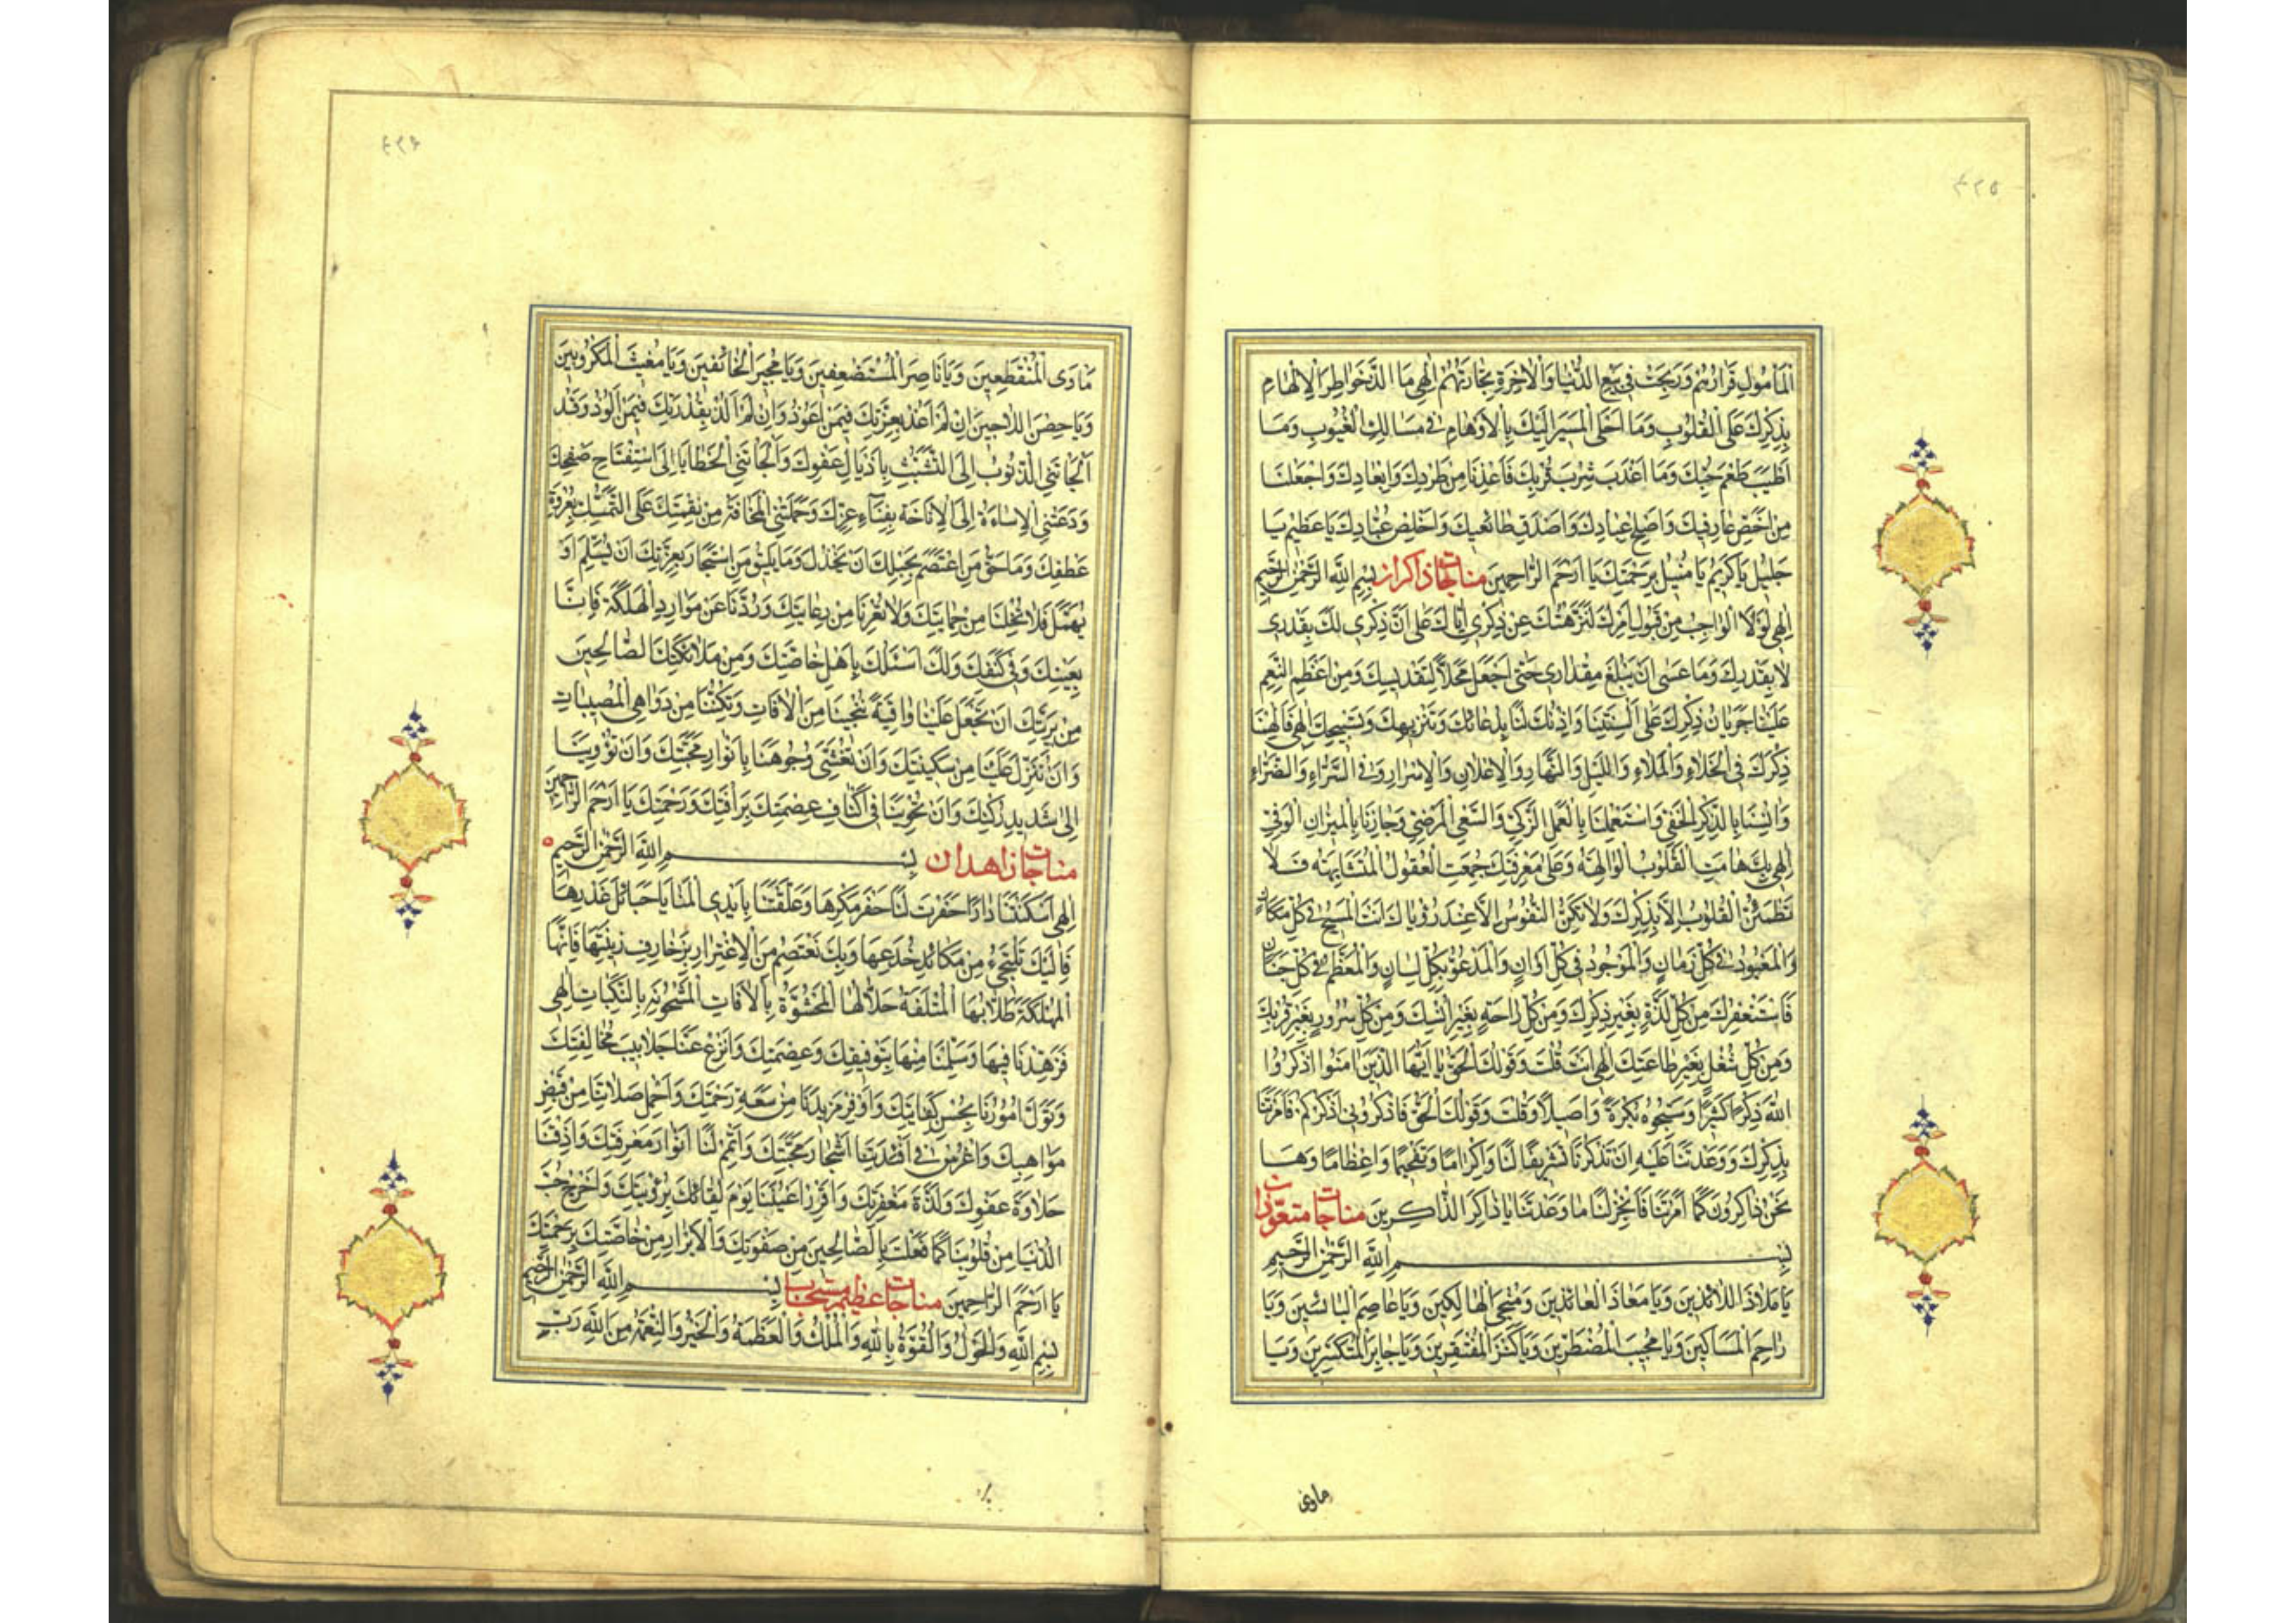 ٤٢٥
الْمَأْمُولِ قَرارُهُمْ وَرَبِحَتْ في بَيْعِ الدُّنْيا وَالْاخِرَةِ تِجارَتُهُمْ اِلٰهي ما اَلَذَّ خَواطِرَ الْاِلْهامِ
بِذِكْرِكَ عَلَى الْقُلُوبِ وَما اَحْلَى الْمَسيرَ اِلَيْكَ بِالْاَوْهامِ في مَسالِكِ الْغُيُوبِ وَما
اَطْيَبَ طَعْمَ حُبِّكَ وَما اَعْذَبَ شِرْبَ قُرْبِكَ فَاَعِذْنا مِنْ طَرْدِكَ وَاِبْعادِكَ وَاجْعَلْنا
مِنْ اَخَصِّ عارِفيكَ وَاَصْلَحِ عِبادِكَ وَاَصْدَقِ طائِعيكَ وَاَخْلَصِ عُبّادِكَ يا عَظيمُ يا
جَليلُ يا كَريمُ يا مُنيلُ بِرَحْمَتِكَ يا اَرْحَمَ الرّاحِمينَ مناجات ذاكران بِسْمِ اللّٰهِ الرَّحْمٰنِ الرَّحيمِ
اِلٰهي لَوْلَا الْواجِبُ مِنْ قَبُولِ اَمْرِكَ لَنَزَّهْتُكَ عَنْ ذِكْري اِيّاكَ عَلىٰ اَنَّ ذِكْري لَكَ بِقَدْري
لا بِقَدْرِكَ وَما عَسىٰ اَنْ يَبْلُغَ مِقْداري حَتّىٰ اُجْعَلَ مَحَلّاً لِتَقْديسِكَ وَمِنْ اَعْظَمِ النِّعَمِ
عَلَيْنا جَرَيانُ ذِكْرِكَ عَلىٰ اَلْسِنَتِنا وَاِذْنُكَ لَنا بِدُعائِكَ وَتَنْزيهِكَ وَتَسْبيحِكَ اِلٰهي فَاَلْهِمْنا
ذِكْرَكَ فِي الْخَلاءِ وَالْمَلاءِ وَاللَّيْلِ وَالنَّهارِ وَالْاِعْلانِ وَالْاِسْرارِ وَفِي السَّرّاءِ وَالضَّرّاءِ
وَانِسْنا بِالذِّكْرِ الْخَفِيِّ وَاسْتَعْمِلْنا بِالْعَمَلِ الزَّكِيِّ وَالسَّعْيِ الْمَرْضِيِّ وَجازِنا بِالْميزانِ الْوَفِيِّ
اِلٰهي بِكَ هامَتِ الْقُلُوبُ الْوالِهَةُ وَعَلىٰ مَعْرِفَتِكَ جُمِعَتِ الْعُقُولُ الْمُتَبايِنَةُ فَلا
تَطْمَئِنُّ الْقُلُوبُ اِلّا بِذِكْرِكَ وَلا تَسْكُنُ النُّفُوسُ اِلّا عِنْدَ رُؤْياكَ اَنْتَ الْمُسَبَّحُ في كُلِّ مَكانٍ
وَالْمَعْبُودُ في كُلِّ زَمانٍ وَالْمَوْجُودُ في كُلِّ اَوانٍ وَالْمَدْعُوُّ بِكُلِّ لِسانٍ وَالْمُعَظَّمُ في كُلِّ جَنانٍ
فَاَسْتَغْفِرُكَ مِنْ كُلِّ لَذَّةٍ بِغَيْرِ ذِكْرِكَ وَمِنْ كُلِّ راحَةٍ بِغَيْرِ اُنْسِكَ وَمِنْ كُلِّ سُرُورٍ بِغَيْرِ قُرْبِكَ
وَمِنْ كُلِّ شُغْلٍ بِغَيْرِ طاعَتِكَ اِلٰهي اَنْتَ قُلْتَ وَقَوْلُكَ الْحَقُّ يا اَيُّهَا الَّذينَ امَنُوا اذْكُرُوا
اللّٰهَ ذِكْراً كَثيراً وَسَبِّحُوهُ بُكْرَةً وَاَصيلاً وَقُلْتَ وَقَوْلُكَ الْحَقُّ فَاذْكُرُوني اَذْكُرْكُمْ فَاَمَرْتَنا
بِذِكْرِكَ وَوَعَدْتَنا عَلَيْهِ اَنْ تَذْكُرَنا تَشْريفاً لَنا وَاِكْراماً وَتَفْخيماً وَاِعْظاماً وَها
نَحْنُ ذاكِرُونَ كَما اَمَرْتَنا فَاَنْجِزْ لَنا ما وَعَدْتَنا يا ذاكِرَ الذّاكِرينَ مناجات
بِسْمِ اللّٰهِ الرَّحْمٰنِ الرَّحيمِ
يا مَلاذَ اللّائِذينَ وَيا مَعاذَ الْعائِذينَ وَمُنْجِيَ الْهالِكينَ وَيا عاصِمَ الْبائِسينَ وَيا
راحِمَ الْمَساكينِ وَيا مُجيبَ الْمُضْطَرّينَ وَيا كَنْزَ الْمُفْتَقِرينَ وَيا جابِرَ الْمُنْكَسِرينَ وَيا
ماوى
٤٢٦
مَاْوَى الْمُنْقَطِعينَ وَيا ناصِرَ الْمُسْتَضْعَفينَ وَيا مُجيرَ الْخائِفينَ وَيا مُغيثَ الْمَكْرُوبينَ
وَيا حِصْنَ اللّاجينَ اِنْ لَمْ اَعُذْ بِعِزَّتِكَ فَبِمَنْ اَعُوذُ وَاِنْ لَمْ اَلُذْ بِقُدْرَتِكَ فَبِمَنْ اَلُوذُ وَقَدْ
اَلْجَاَتْنِي الذُّنُوبُ اِلَى التَّشَبُّثِ بِاَذْيالِ عَفْوِكَ وَاَلْجَاَتْنِي الْخَطايا اِلَى اسْتِفْتاحِ صَفْحِكَ
وَدَعَتْنِي الْاِساءَةُ اِلَى الْاِناخَةِ بِفِناءِ عِزِّكَ وَحَمَلَتْنِي الْمَخافَةُ مِنْ نِقْمَتِكَ عَلَى التَّمَسُّكِ بِعُرْوَةِ
عَطْفِكَ وَما حَقُّ مَنِ اعْتَصَمَ بِحَبْلِكَ اَنْ يُخْذَلَ وَما يَليقُ مَنِ اسْتَجارَ بِعِزَّتِكَ اَنْ يُسْلَمَ اَوْ
يُهْمَلَ فَلا تُخْلِنا مِنْ حِمايَتِكَ وَلا تُعْرِنا مِنْ رِعايَتِكَ وَرُدَّنا عَنْ مَوارِدِ الْهَلَكَةِ فَاِنّا
بِعَيْنِكَ وَفي كَنَفِكَ وَلَكَ اَسْئَلُكَ بِاَهْلِ خاصَّتِكَ وَمِنْ مَلائِكَتِكَ الصّالِحينَ
مِنْ بَرِيَّتِكَ اَنْ تَجْعَلَ عَلَيْنا واقِيَةً تُنْجينا مِنَ الْافاتِ وَتُكِنُّنا مِنْ دَواهِي الْمُصيباتِ
وَاَنْ تُنْزِلَ عَلَيْنا مِنْ سَكينَتِكَ وَاَنْ تُغَشِّيَ وُجُوهَنا بِاَنْوارِ مَحَبَّتِكَ وَاَنْ تُؤْوِيَنا
اِلىٰ شَديدِ رُكْنِكَ وَاَنْ تَحْوِيَنا في اَكْنافِ عِصْمَتِكَ بِرَاْفَتِكَ وَرَحْمَتِكَ يا اَرْحَمَ الرّاحِمينَ
مناجات زاهدان بِسْمِ اللّٰهِ الرَّحْمٰنِ الرَّحيمِ
اِلٰهي اَسْكَنْتَنا داراً حَفَرَتْ لَنا حُفَرَ مَكْرِها وَعَلَّقَتْنا بِاَيْدِي الْمَنايا حَبائِلُ غَدْرِها
فَاِلَيْكَ نَلْتَجِئُ مِنْ مَكائِدِ خُدَعِها وَبِكَ نَعْتَصِمُ مِنَ الْاِغْتِرارِ بِزَخارِفِ زينَتِها فَاِنَّها
الْمُهْلِكَةُ طُلّابَهَا الْمُتْلِفَةُ حُلّالَهَا الْمَحْشُوَّةُ بِالْافاتِ الْمَشْحُونَةُ بِالنَّكَباتِ اِلٰهي
فَزَهِّدْنا فيها وَسَلِّمْنا مِنْها بِتَوْفيقِكَ وَعِصْمَتِكَ وَانْزِعْ عَنّا جَلابيبَ مُخالَفَتِكَ
وَتَوَلَّ اُمُورَنا بِحُسْنِ كِفايَتِكَ وَاَوْفِرْ مَزيدَنا مِنْ سَعَةِ رَحْمَتِكَ وَاَجْمِلْ صِلاتِنا مِنْ فَيْضِ
مَواهِبِكَ وَاغْرِسْ في اَفْئِدَتِنا اَشْجارَ مَحَبَّتِكَ وَاَتْمِمْ لَنا اَنْوارَ مَعْرِفَتِكَ وَاَذِقْنا
حَلاوَةَ عَفْوِكَ وَلَذَّةَ مَغْفِرَتِكَ وَاَقْرِرْ اَعْيُنَنا يَوْمَ لِقائِكَ بِرُؤْيَتِكَ وَاَخْرِجْ حُبَّ
الدُّنْيا مِنْ قُلُوبِنا كَما فَعَلْتَ بِالصّالِحينَ مِنْ صَفْوَتِكَ وَالْاَبْرارِ مِنْ خاصَّتِكَ بِرَحْمَتِكَ
يا اَرْحَمَ الرّاحِمينَ مناجات بِسْمِ اللّٰهِ الرَّحْمٰنِ الرَّحيمِ
بِسْمِ اللّٰهِ وَالْحَوْلُ وَالْقُوَّةُ بِاللّٰهِ وَالْمُلْكُ وَالْعَظَمَةُ وَالْخَيْرُ وَالنِّعْمَةُ مِنَ اللّٰهِ رَبِّ